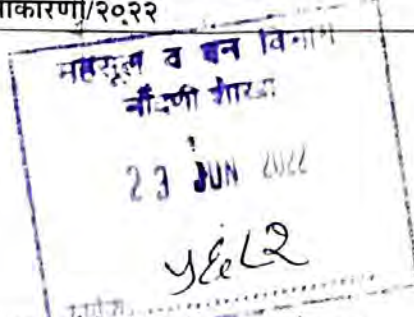 ाकारणी/२०२२
महसूल व वन विभाग
नोंदणी शाखा
23 JUN 2022
५६८२